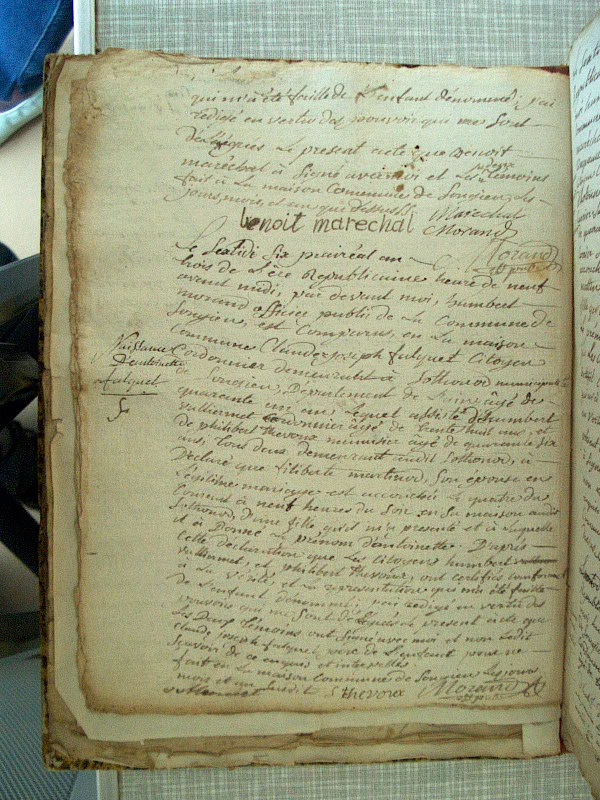 qui m'a été faitte de l'enfant dénommé; j'ai
rédigé en vertu des pouvoirs qui me sont
délégués le present acte que Benoit
maréchal à signé avec moi et les témoins
fait à la maison commune de Songieu les
jour, mois, et an que dessus. Marechal
benoit marechal Morand
Morand
off. public
Le Sextidi six prairéal an
trois de l'ère Republicaine heure de neuf
avant midi, par devant moi, humbert
morand officier public de la Commune de
Songieu, est comparus, en la maison
Commune Claude joseph fulquet Citoyen
Cordonnier demeurant à Sothonod municipalité
de Songieu, Département de âgé de
quarante un an, Lequel assisté de humbert
vulliermet Cordonnier âgé de trente huit ans, et
de philibert thevoux menuisier âgé de quarante six
ans, tous deux demeurant audit Sothonod, à
Déclaré que filiberte martinod, Son epouse en
Légitime mariage est accouchée le quatre du
Courant à neuf heures du Soir en Sa maison audit
Sothonod, d'une fille qu'il m'a presenté et à Laquelle
il à Donné le prénom d'antoinette. D'après
Cette déclaration que les Citoyens humbert
vulliermet, et philibert thevoux, ont certifiés conforme
à la vérité, et la représentation qui m'a été faitte
de l'enfant dénommé; j'ai redigé en vertu des
pouvoirs qui me Sont délégués le present acte que
les Deux témoins ont Signé avec moi et non Ledit
Claude joseph fulquet père de l'enfant pour ne
Savoir de ce enquis et interpellés
fait en la maison commune de Songieu les jour
mois et an susdit
vulliermet thevoux Morand
off. public
Naissance
D'antoinette
fulquet